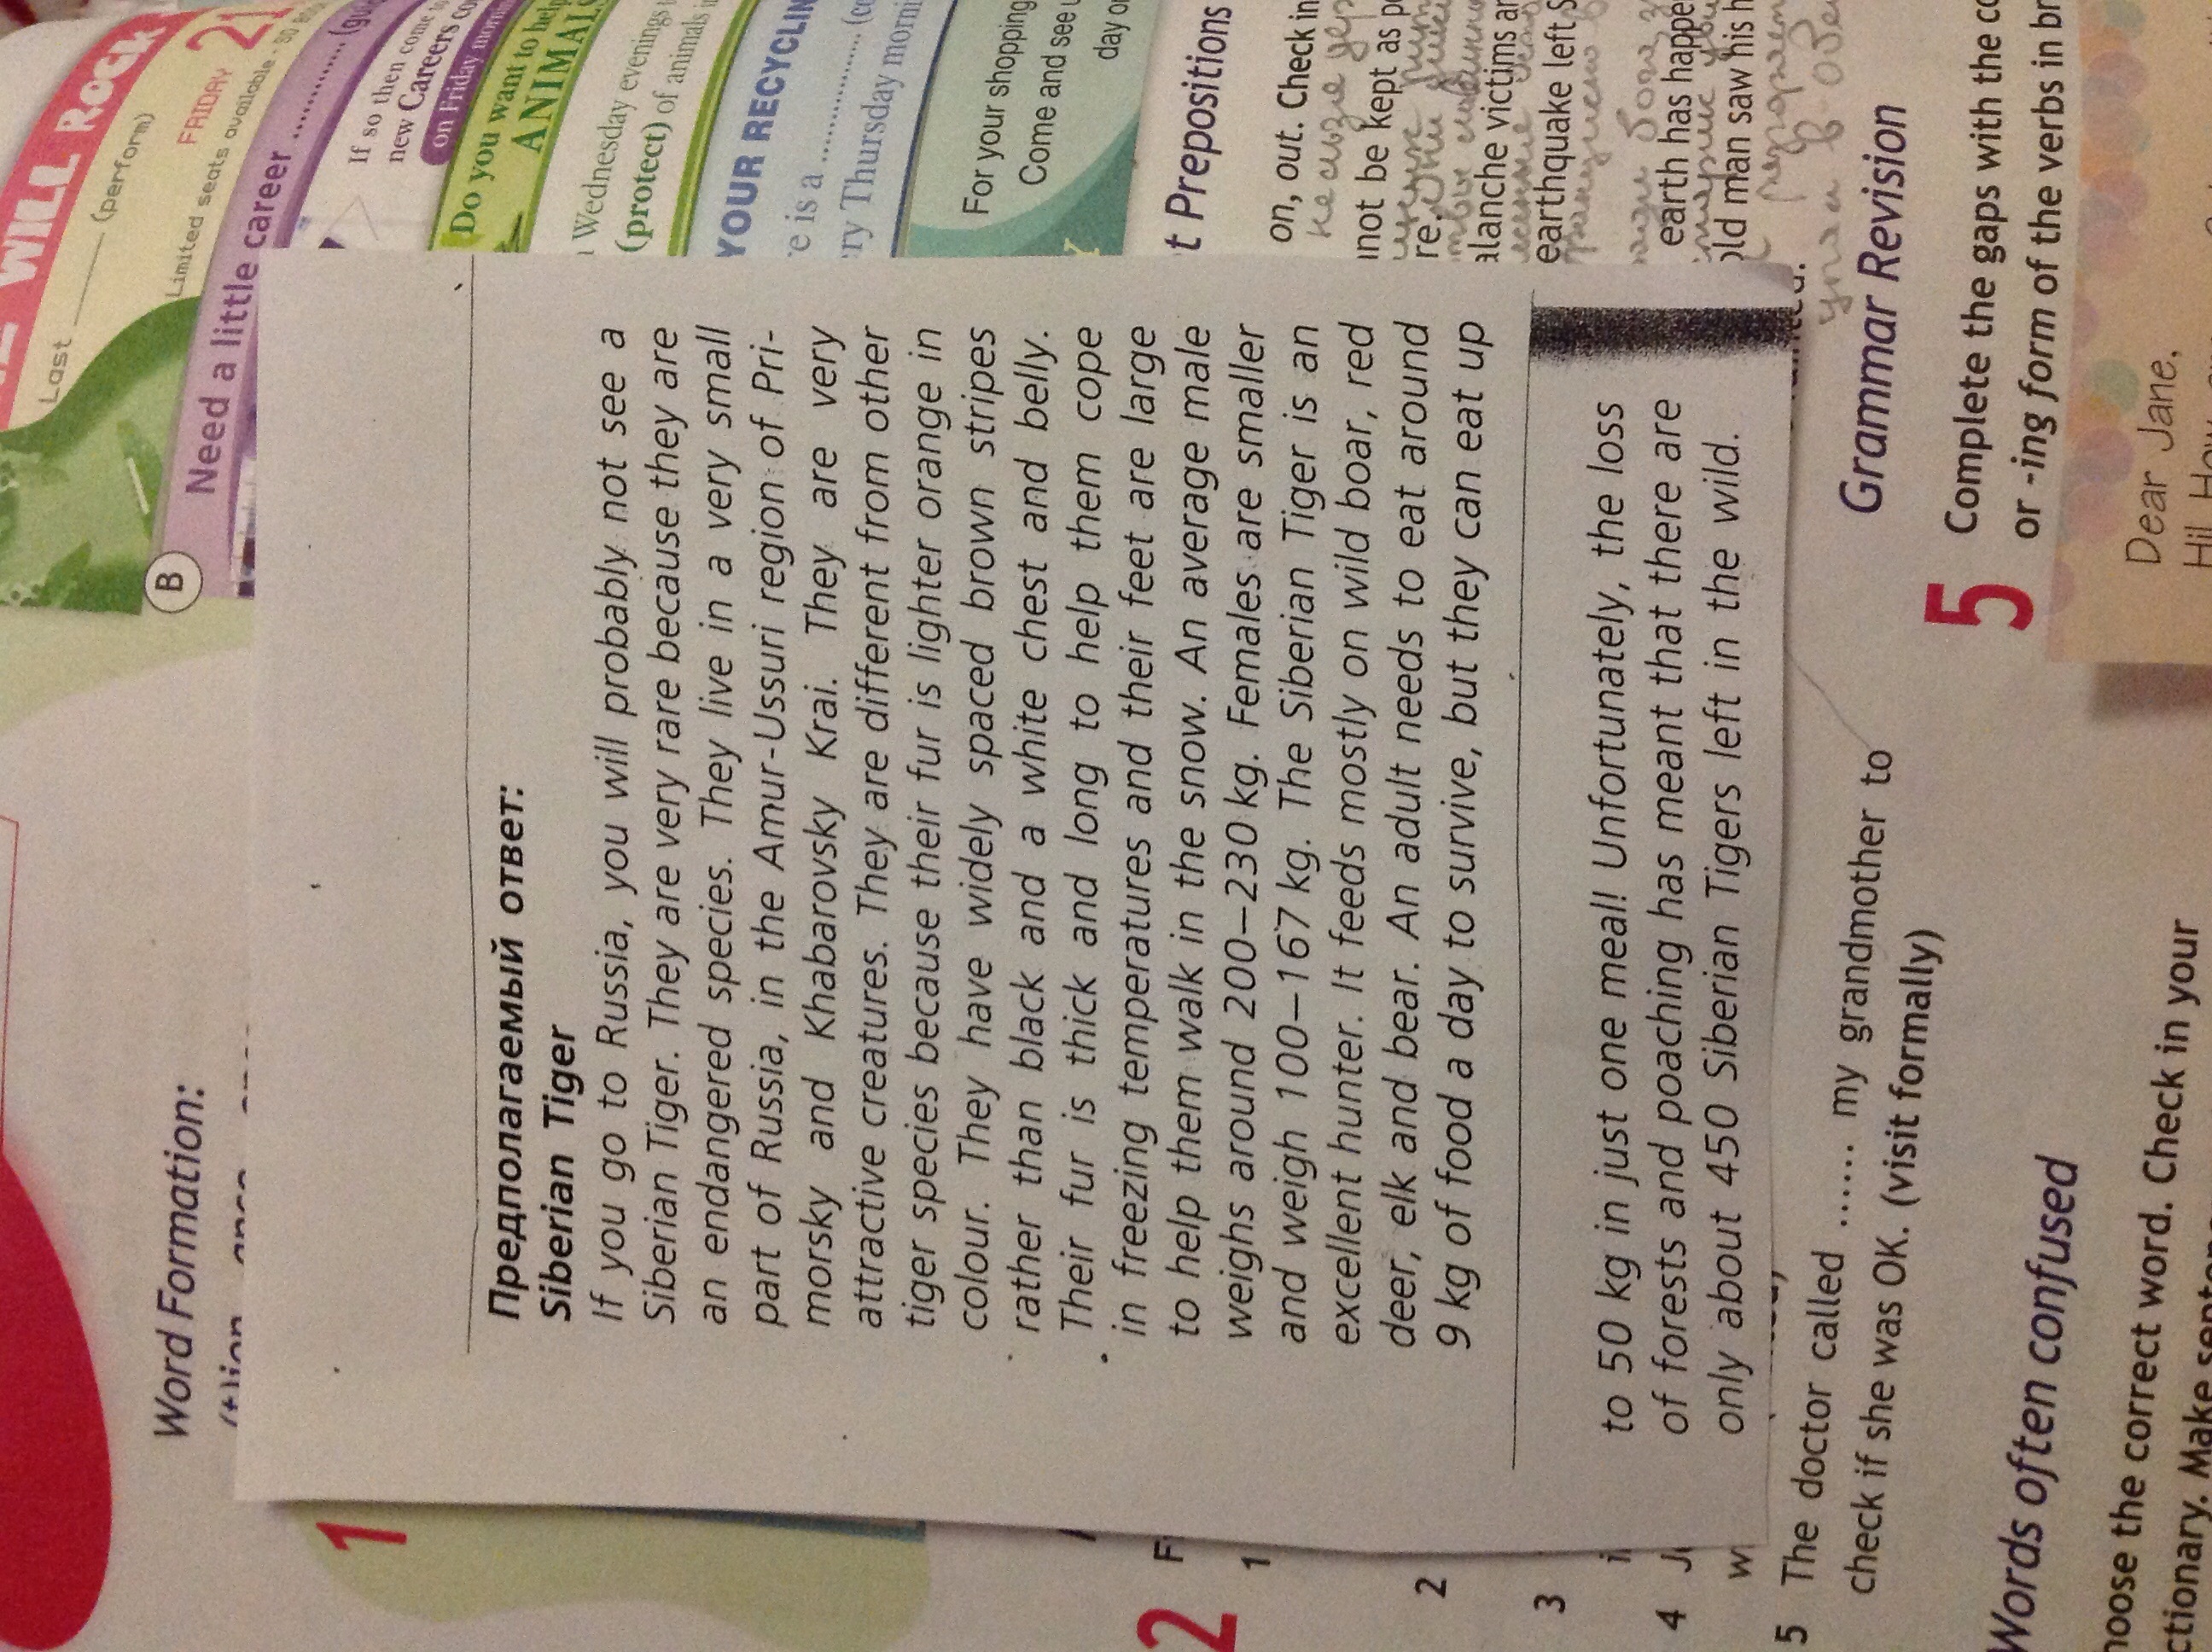 WILL ROCK
Last (perform)
FRIDAY 21
Limited seats available - 50
B
Need a little career .......... (gu
If so then come
new Careers
on Friday
Do you want to help
ANIMALS
Wednesday evenings
(protect) of animals
YOUR RECYCLIN
e is a ..........
ry Thursday morni
For your shopping
Come and see
day
Word Formation:
1
Предполагаемый ответ:
Siberian Tiger
If you go to Russia, you will probably not see a
Siberian Tiger. They are very rare because they are
an endangered species. They live in a very small
part of Russia, in the Amur-Ussuri region of Pri-
morsky and Khabarovsky Krai. They are very
attractive creatures. They are different from other
tiger species because their fur is lighter orange in
colour. They have widely spaced brown stripes
rather than black and a white chest and belly.
Their fur is thick and long to help them cope
in freezing temperatures and their feet are large
to help them walk in the snow. An average male
weighs around 200–230 kg. Females are smaller
and weigh 100–167 kg. The Siberian Tiger is an
excellent hunter. It feeds mostly on wild boar, red
deer, elk and bear. An adult needs to eat around
9 kg of food a day to survive, but they can eat up
to 50 kg in just one meal! Unfortunately, the loss
of forests and poaching has meant that there are
only about 450 Siberian Tigers left in the wild.
t Prepositions
2 F
on, out. Check in
1
not be kept as
re.
2
alanche victims
earthquake left
3
earth has happe
4 J
old man saw his
w
5 The doctor called ...... my grandmother to
check if she was OK. (visit formally)
Words often confused
oose the correct word. Check in your
ctionary. Make
Grammar Revision
5 Complete the gaps with the
or -ing form of the verbs in
Dear Jane,